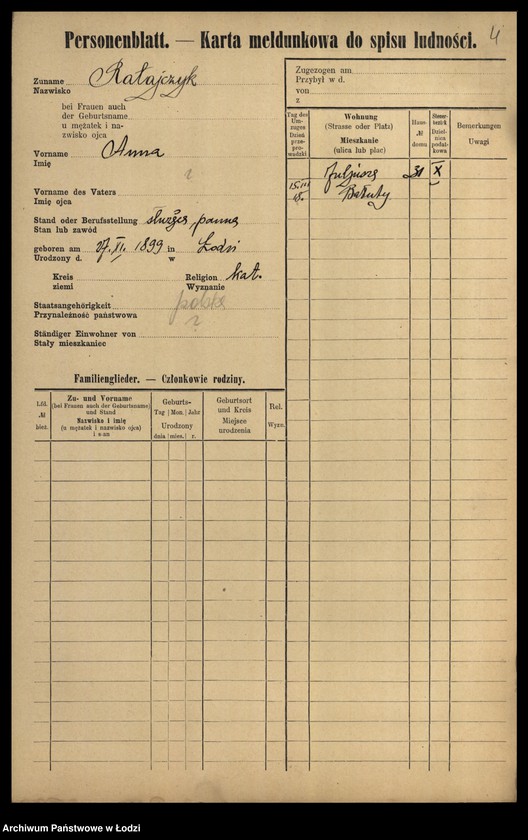 4
Personenblatt. — Karta meldunkowa do spisu ludności.
Zuname Ratajczyk
Nazwisko
bei Frauen auch
der Geburtsname
u mężatek i na-
zwisko ojca
Vorname Anna
Imię
?
Vorname des Vaters
Imię ojca
Stand oder Berufsstellung służąca, panna
Stan lub zawód
geboren am 27. XI. 1899 in Łodzi
Urodzony d. w
Kreis Religion kat.
ziemi Wyznanie
Staatsangehörigkeit polska
Przynależność państwowa ?
Ständiger Einwohner von
Stały mieszkaniec
Zugezogen am
Przybył w d.
von
z
Tag des Um-zuges Dzień prze-pro-wadzki
Wohnung
(Strasse oder Platz)
Mieszkanie
(ulica lub plac)
Haus-
№
domu
Steuer-bezirk Dziel-nica podat-kowa
Bemerkungen
Uwagi
15.III 18. Juljusza 31 X
Bałuty
Familienglieder. — Członkowie rodziny.
Lfd.
№
bież.
Zu- und Vorname
(bei Frauen auch der Geburtsname)
und Stand
Nazwisko i imię
(u mężatek i nazwisko ojca)
i stan
Geburts-
Tag Mon. Jahr
Urodzony
dnia mies. r.
Geburtsort
und Kreis
Miejsce
urodzenia
Rel.
Wyzn.
Archiwum Państwowe w Łodzi